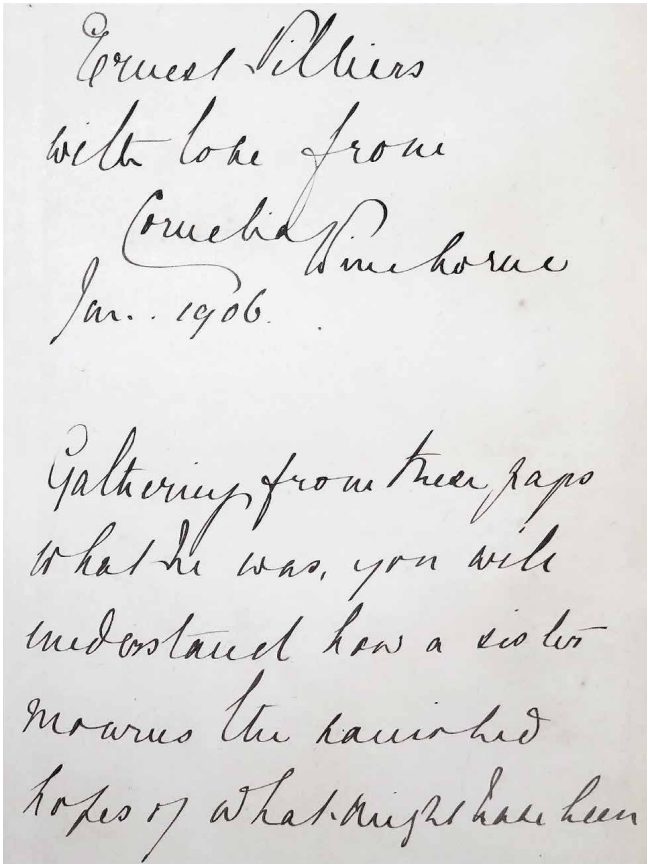 Ernest Villiers
with love from
Cornelia Pinehorne
Jan. 1906.
Gathering from these pages
what he was, you will
understand how a sister
mourns the vanished
hopes of what might have been